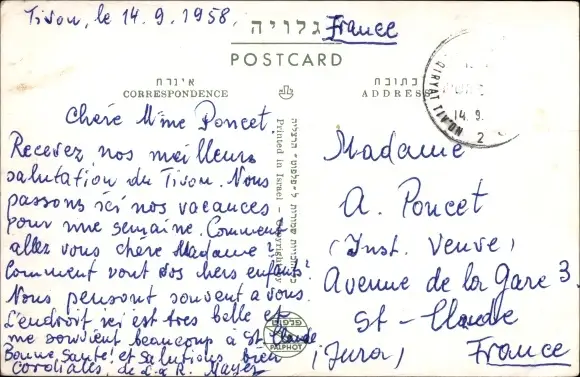 Tivon, le 14.9.1958,
גלויה
France
POSTCARD
אינרח
CORRESPONDENCE
כתובת
ADDRESS
QIRYAT TIV'ON
14.9.
2
Chère Mme Poncet.
Recevez nos meilleurs
salutation du Tivon. Nous
passons ici nos vacances
pour une semaine. Comment
allez vous chère Madame?
Comment vont vos chers enfants?
Nous pensons souvent a vous.
L'endroit ici est tres belle et
me souvient beaucoup à St-Claude
Bonne santé! et Salutions bien
Cordiales, de L & R. Mayer
Printed in Israel - Copyright by
פלפוט
PALPHOT
Madame
A. Poncet
(Inst. Veuve)
Avenue de la Gare 3.
St-Claude
(Jura) France